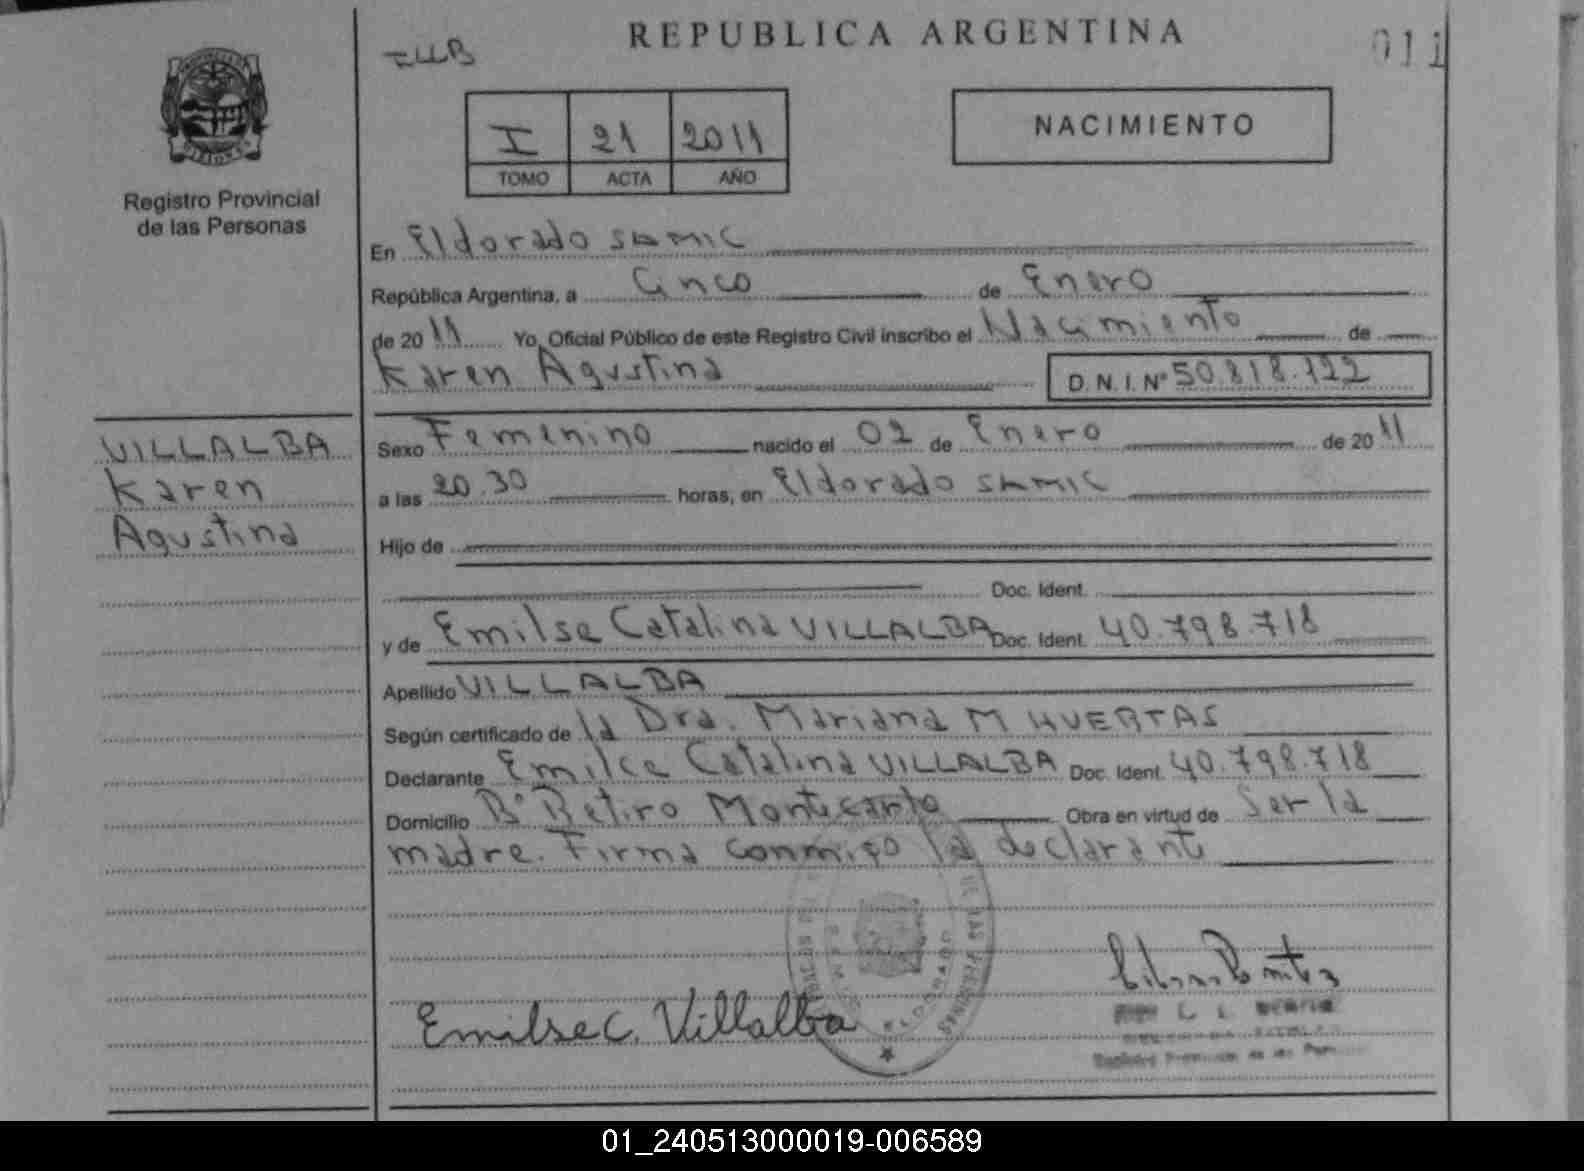 REPUBLICA ARGENTINA
011
I 21 2011
TOMO ACTA AÑO
NACIMIENTO
MISIONES
Registro Provincial
de las Personas
En Eldorado SAMIC
República Argentina, a Cinco de Enero
de 2011 Yo, Oficial Público de este Registro Civil inscribo el Nacimiento de
Karen Agustina D.N.I. Nº 50.818.122
VILLALBA
Karen
Agustina
Sexo Femenino nacido el 02 de Enero de 2011
a las 20.30 horas, en Eldorado SAMIC
Hijo de
Doc. Ident.
y de Emilse Catalina VILLALBA Doc. Ident. 40.798.718
Apellido VILLALBA
Según certificado de la Dra. Mariana M HUERTAS
Declarante Emilce Catalina VILLALBA Doc. Ident. 40.798.718
Domicilio Bº Retiro Montecarlo Obra en virtud de Ser la
madre. Firma conmigo la declarante
DE LAS PERSONAS
ELDORADO
Emilse C. Villalba
Registro Provincial de las Personas
01_240513000019-006589